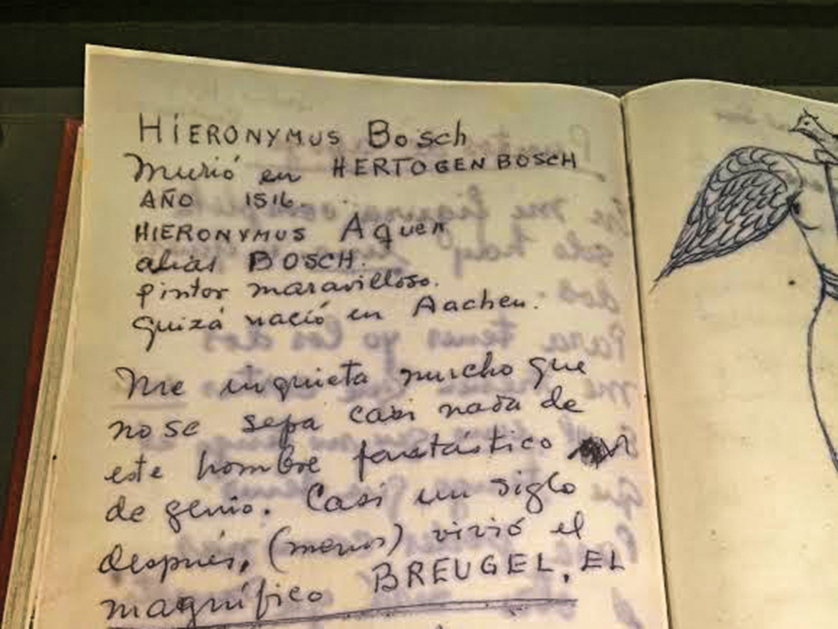 HIERONYMUS Bosch
Murió en HERTOGENBOSCH
AÑO 1516.
HIERONYMUS Aquen
alias BOSCH.
pintor maravilloso.
quizá nació en Aachen.
Me inquieta mucho que
no se sepa casi nada de
este hombre fantástico
de genio. Casi un siglo
después, (menos) vivió el
magnífico BREUGEL, EL